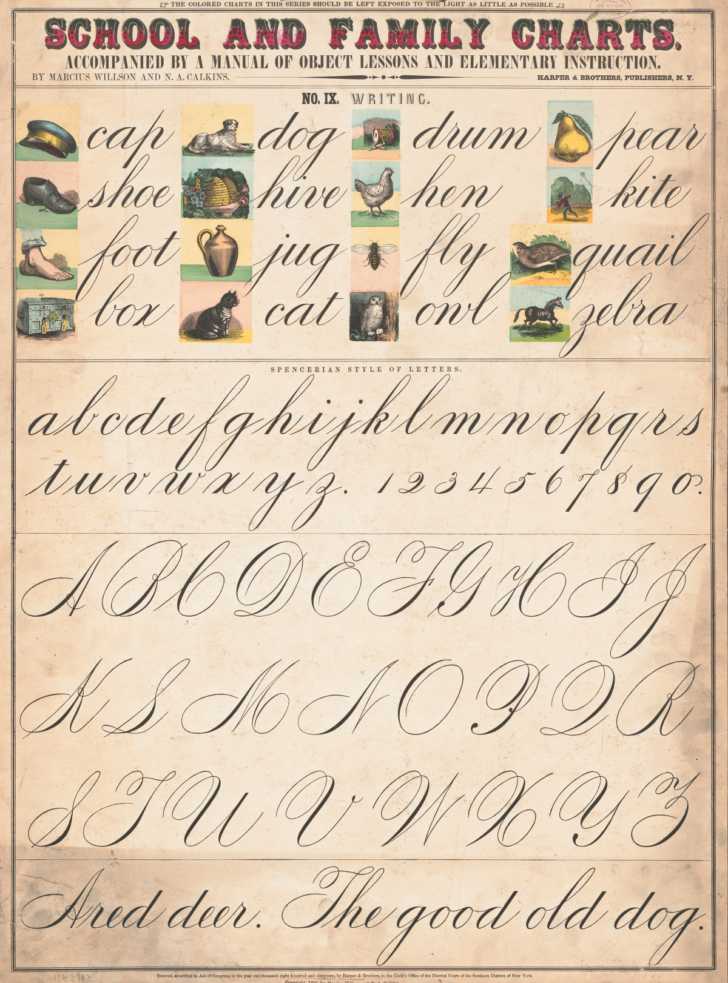 ☞ THE COLORED CHARTS IN THIS SERIES SHOULD BE LEFT EXPOSED TO THE LIGHT AS LITTLE AS POSSIBLE ☜
SCHOOL AND FAMILY CHARTS.
ACCOMPANIED BY A MANUAL OF OBJECT LESSONS AND ELEMENTARY INSTRUCTION.
BY MARCIUS WILLSON AND N. A. CALKINS. HARPER & BROTHERS, PUBLISHERS, N. Y.
NO. IX. WRITING.
cap dog drum pear
shoe hive hen kite
foot jug fly quail
box cat owl zebra
SPENCERIAN STYLE OF LETTERS.
a b c d e f g h i j k l m n o p q r s
t u v w x y z. 1 2 3 4 5 6 7 8 9 0.
A B C D E F G H I J
K L M N O P Q R
S T U V W X Y Z
A red deer. The good old dog.
Entered, according to Act of Congress, in the year one thousand eight hundred and by Harper & Brothers, in the Clerk's Office of the District Court of the Southern District of New York.